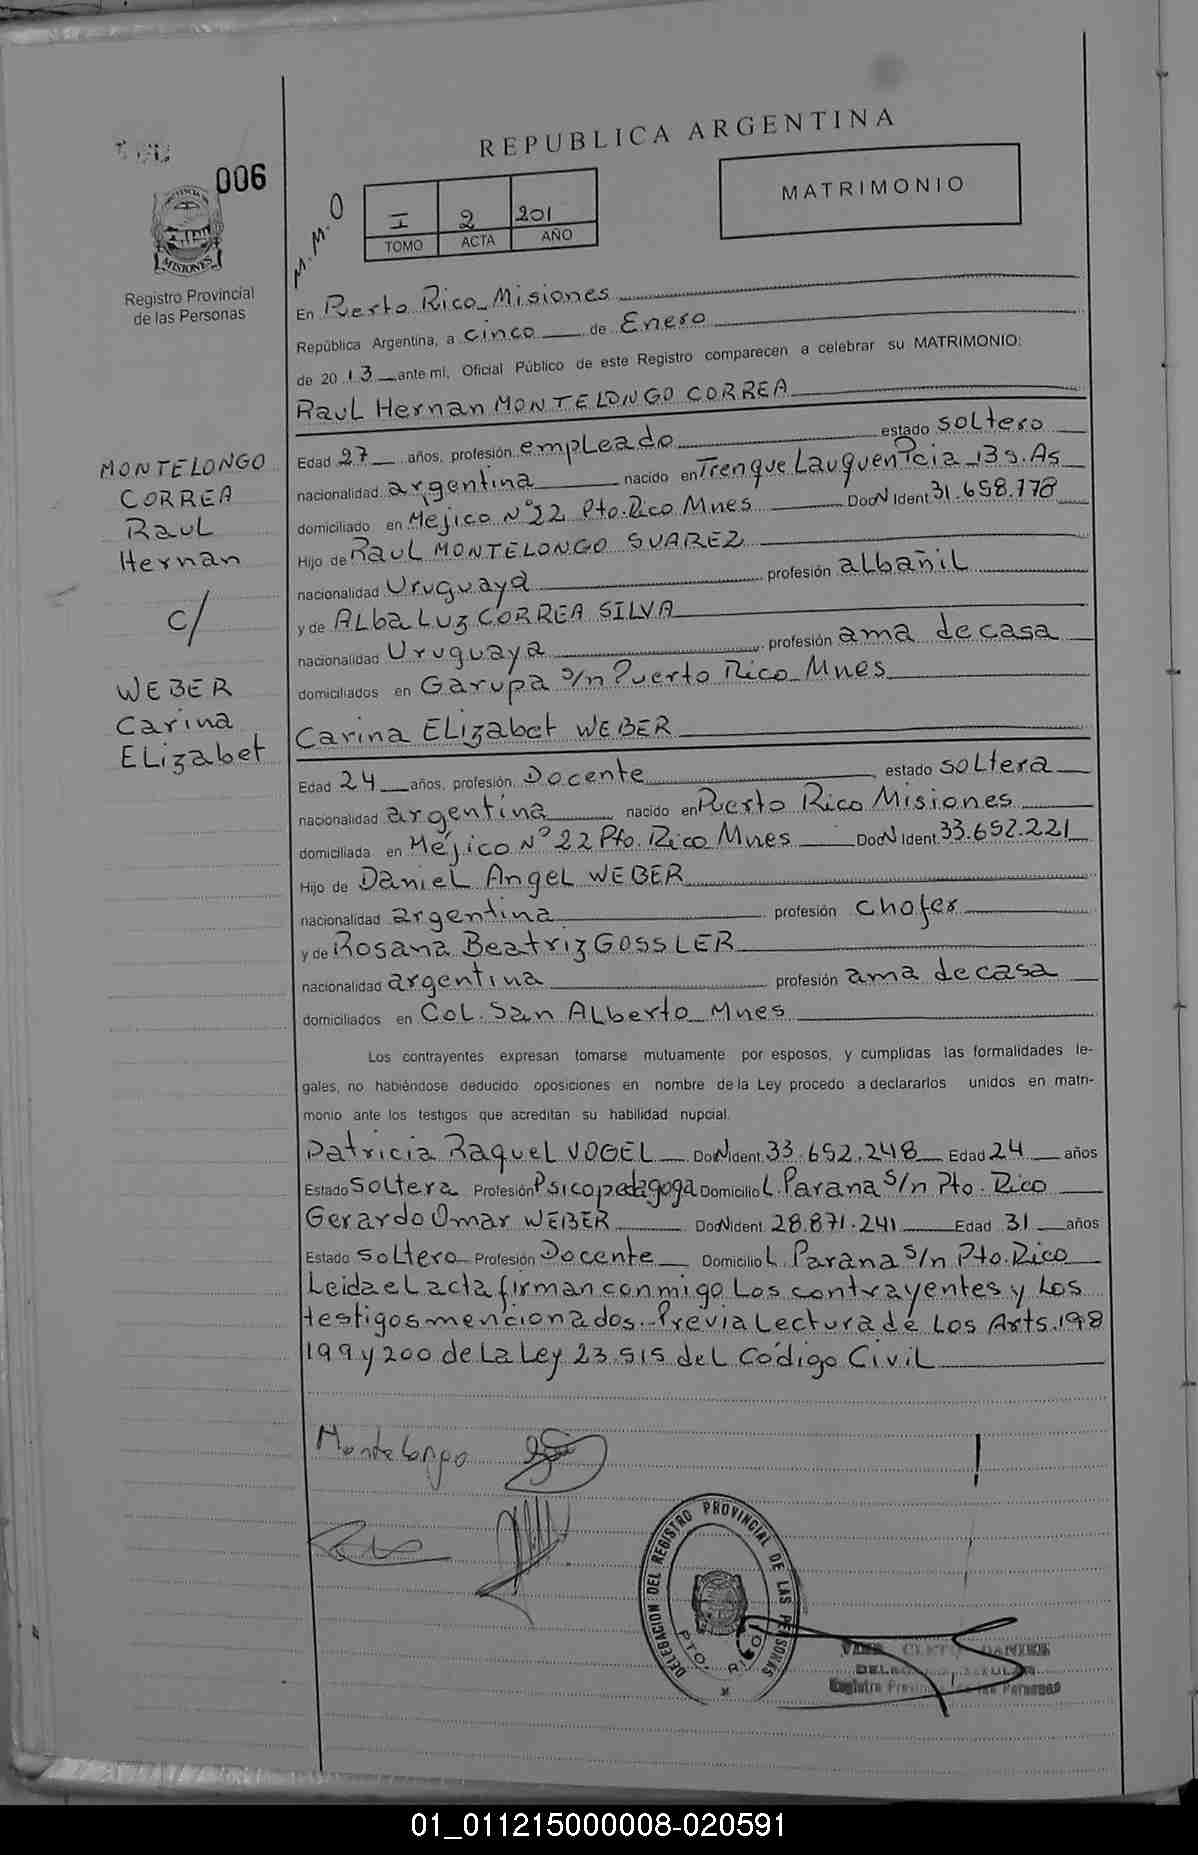 REPUBLICA ARGENTINA
006
MISIONES
Registro Provincial
de las Personas
M.M.O
I 2 201
TOMO ACTA AÑO
MATRIMONIO
En Puerto Rico Misiones
República Argentina, a cinco de Enero
de 2013 ante mí, Oficial Público de este Registro comparecen a celebrar su MATRIMONIO:
Raul Hernan MONTELONGO CORREA
MONTELONGO
CORREA
Raul
Hernan
c/
WEBER
Carina
Elizabet
Edad 27 años, profesión empleado estado soltero
nacionalidad argentina nacido en Trenque Lauquen Pcia Bs. As
domiciliado en Mejico N° 22 Pto. Rico Mnes Doc N Ident 31.658.778
Hijo de Raul MONTELONGO SUAREZ
nacionalidad Uruguaya profesión albañil
y de Alba Luz CORREA SILVA
nacionalidad Uruguaya profesión ama de casa
domiciliados en Garupa s/n Puerto Rico Mnes
Carina Elizabet WEBER
Edad 24 años, profesión Docente estado soltera
nacionalidad argentina nacido en Puerto Rico Misiones
domiciliada en Méjico N° 22 Pto. Rico Mnes Doc N Ident 33.652.221
Hijo de Daniel Angel WEBER
nacionalidad argentina profesión chofer
y de Rosana Beatriz GOSSLER
nacionalidad argentina profesión ama de casa
domiciliados en Col. San Alberto Mnes
Los contrayentes expresan tomarse mutuamente por esposos, y cumplidas las formalidades le-
gales, no habiéndose deducido oposiciones en nombre de la Ley procedo a declararlos unidos en matri-
monio ante los testigos que acreditan su habilidad nupcial.
Patricia Raquel VOGEL Doc N ident. 33.652.248 Edad 24 años
Estado soltera Profesión Psicopedagoga Domicilio L. Parana s/n Pto. Rico
Gerardo Omar WEBER Doc N ident. 28.871.241 Edad 31 años
Estado soltero Profesión Docente Domicilio L. Parana s/n Pto. Rico
Leida el acta firman conmigo los contrayentes y los
testigos mencionados. Previa Lectura de Los Arts. 198
199 y 200 de La Ley 23.515 del Código Civil
Montelongo
DELEGACION DEL REGISTRO PROVINCIAL DE LAS PERSONAS
PTO. RICO
01_011215000008-020591